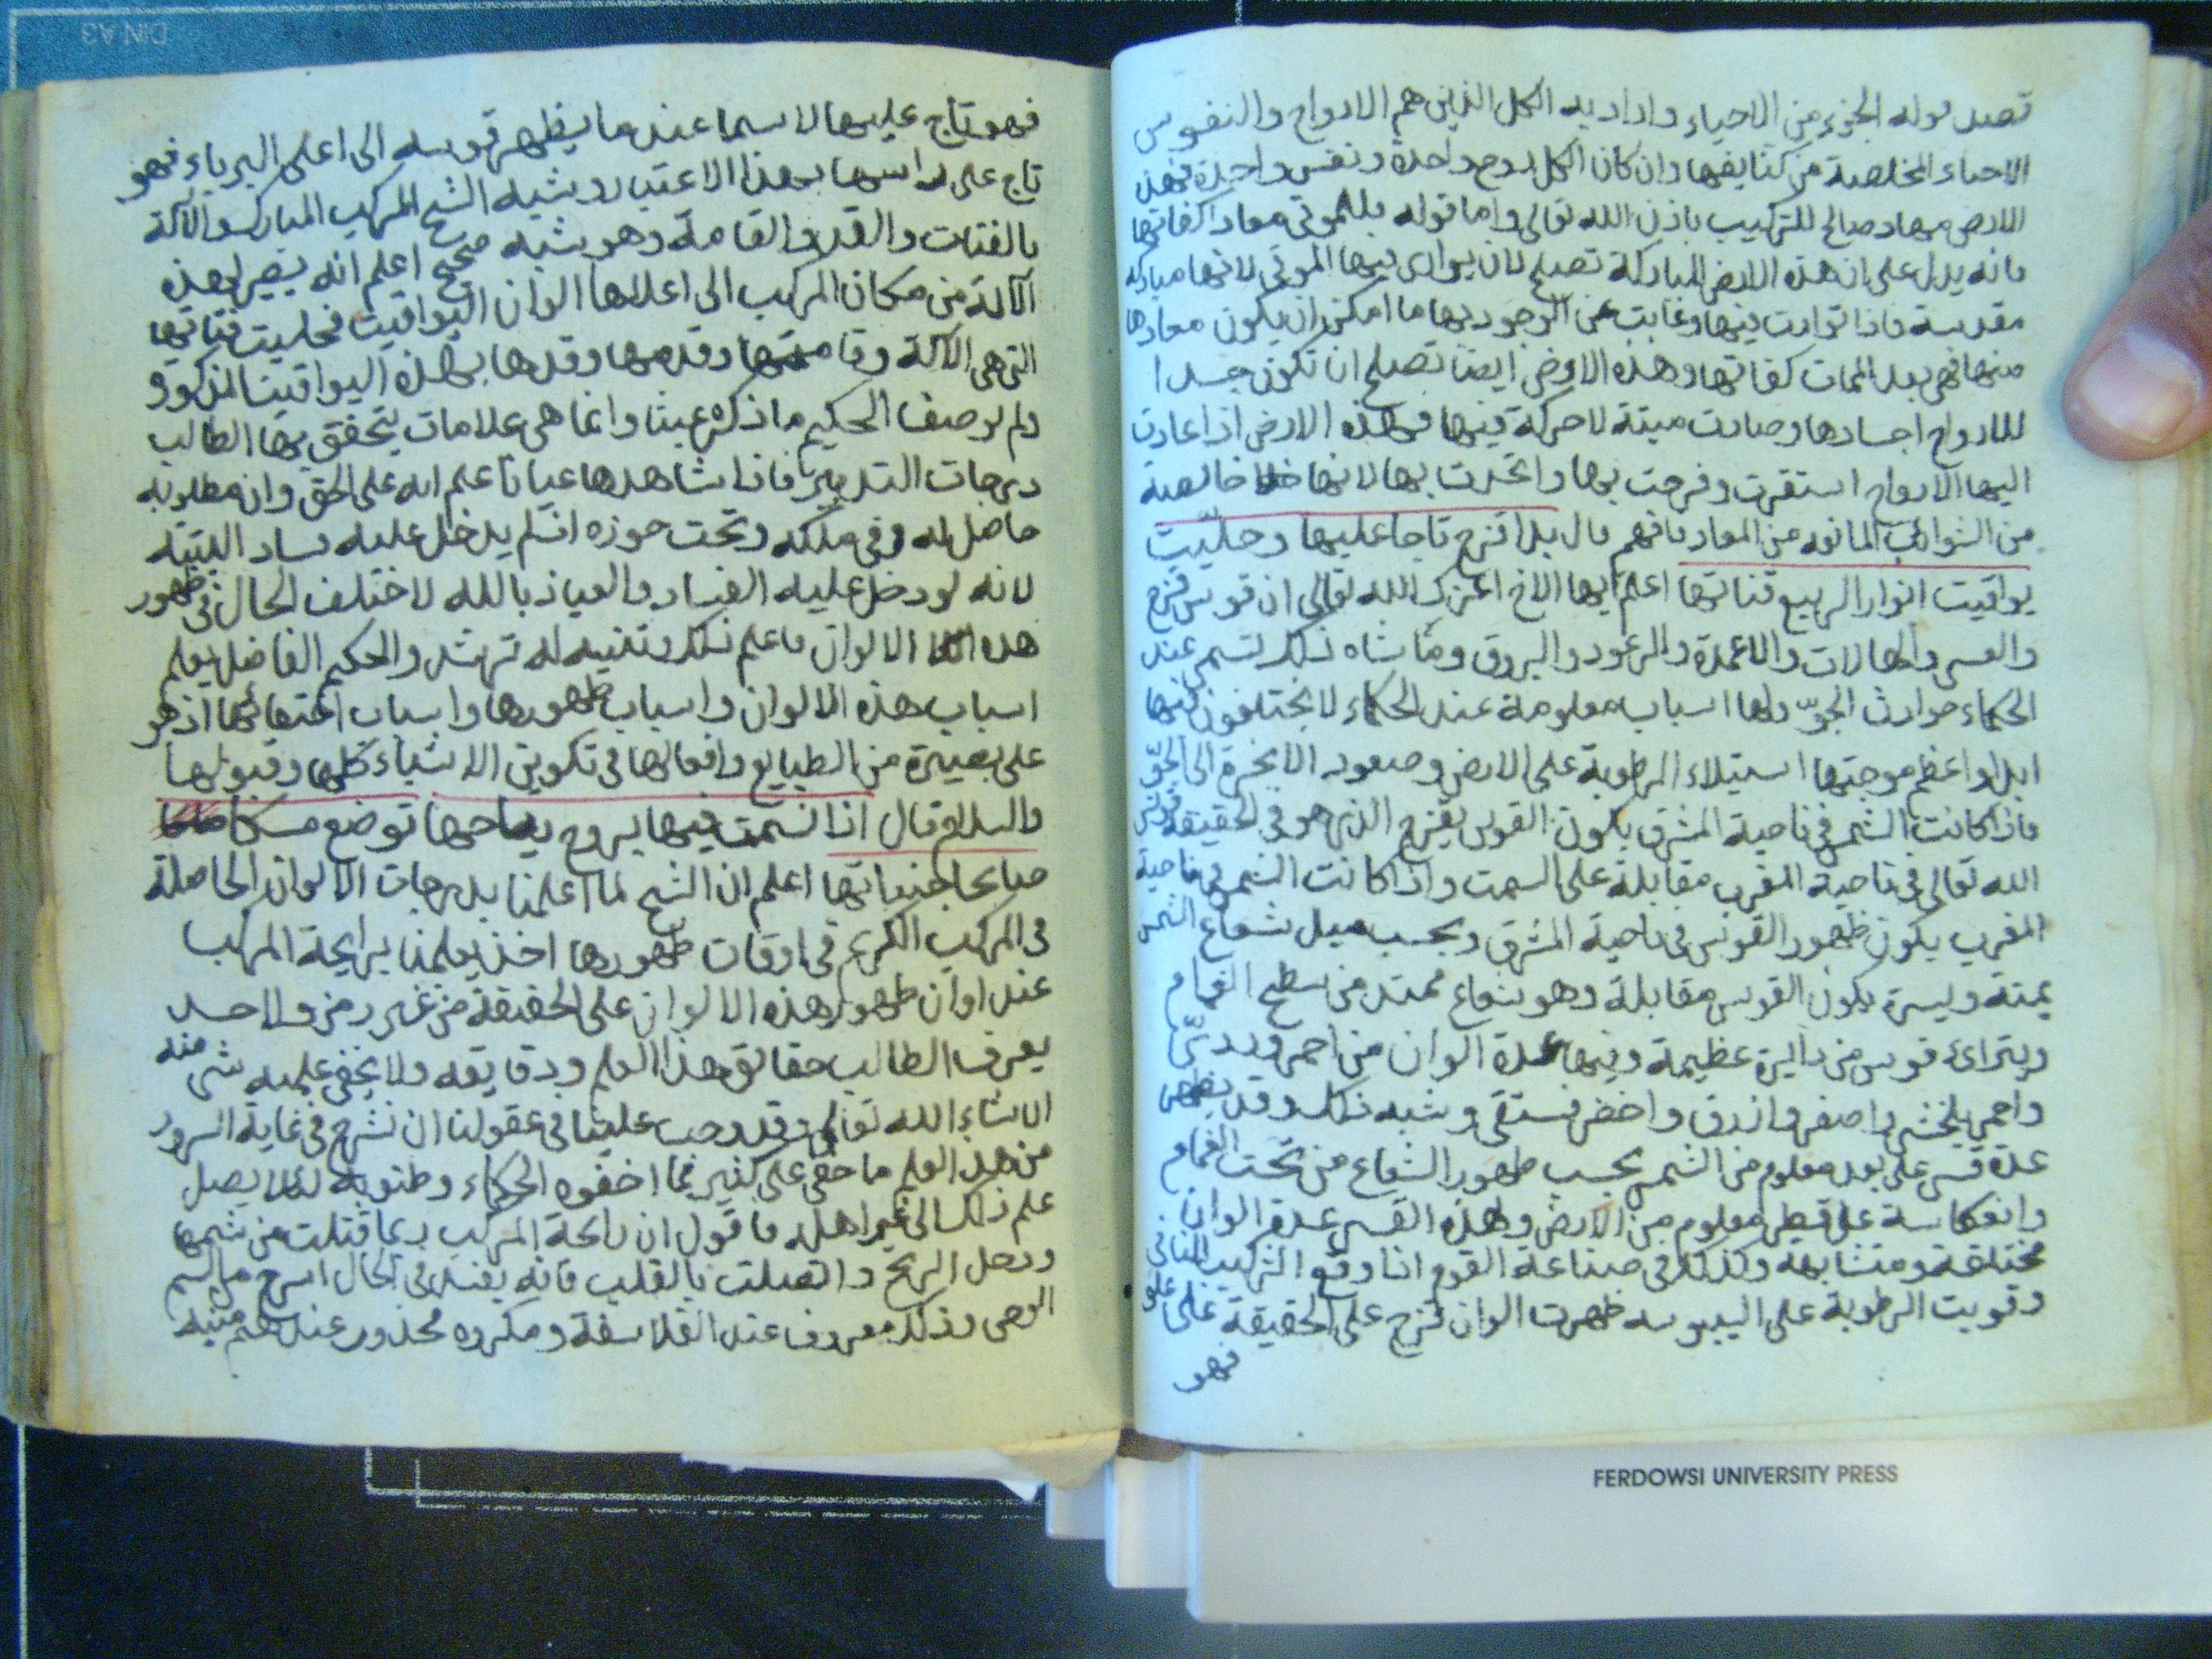 قصد بوله الجزء من الاحياء واراد به الكل الذين هم الارواح والنفوس
الاحياء المخلصة من كثايفها وان كان الكل روح واحدة ونفس واحدة فهذه
الارض مهاد صالح للتركيب باذن الله تعالى واما قوله بل للموتى معاد كفاتها
فانه يدل على ان هذه الارض المباركة تصلح لان يوارى فيها الموتى لانها مباركه
مقدسة فاذا توارت فيها وغابت عن الوجود بها ما امكن ان يكون معادها
منها فهي بعد الممات كفاتها وهذه الارض ايضا تصلح ان تكون جسدا
للارواح اجسادها وصارت ميتة لا حركة فيها فهذه الارض اذا عادت
اليها الارواح استقرت وفرحت بها واتحدت بها لانها خالصة
من الشوائب المانعه من المعاد فافهم قال بدا قزح تاجا عليها وحلّيت
يواقيت انوار الربيع قناتها اعلم ايها الاخ اعزك الله تعالى ان قوس قزح
والقسى والهالات والاعمدة والرعود والبروق وما شاه ذلك تسمى عند
الحكماء حوادث الجوّ ولها اسباب معلومة عند الحكماء لا يختلفون فيها
ابدا واعظم موجبها استيلاء الرطوبة على الارض وصعود الابخرة الى الجوّ
فاذا كانت الشمس في ناحية المشرق يكون القوس بقزح الذى هو في الحقيقة قوس
الله تعالى في ناحية المغرب مقابلة على السمت واذا كانت الشمس في ناحية
المغرب يكون ظهور القوس في ناحية المشرق وبحسب ميل شعاع الشمس
يمتة ويسرة يكون القوس مقابلة وهو شعاع ممتد من سطح الغمام
ويتراىء قوس من دايرة عظيمة وفيها عدة الوان من احمر وردىّ
واحمر بلخشى واصفر وازرق واخضر فستقى وشبه ذلك وقد يظهر
عدة قسى على بعد معلوم من الشمس بحسب ظهور الشعاع من تحت الغمام
وانعكاسة على قطر معلوم من الارض ولهذه القسى عدة الوان
مختلفة ومتشابهة وكذلك في صناعة القوم اذا وقع التركيب الثانى
وقويت الرطوبة على اليبوسه ظهرت الوان قزح على الحقيقة على
فهو
فهو تاج عليها لا سيما عند ما يظهر قوسه الى اعلى البرباء فهو
تاج على راسها بهذا الاعتبار وشبه الشيخ المركب المبارك والآلة
بالفتات والقد والقامة وهو شبه صحيح اعلم انه يصير لهذه
الآلة من مكان المركب الى اعلاها الوان اليواقيت فحليت قناتها
التى هى الآلة وقامتها وقدمها وقدها بهذه اليواقيت المذكورة
ولم يوصف الحكيم ما ذكره عبثا وانما هى علامات يتحقق بها الطالب
درجات التدبير فاذا شاهدها عيانا علم انه على الحق وان مطلوبه
حاصل له وفى ملكه وتحت حوزه اذ لم يدخل عليه فساد البتة
لانه لو دخل عليه الفساد والعياذ بالله لاختلف الحال في ظهور
هذه الالوان فاعلم ذلك وتنبه له ترشد والحكيم الفاضل يعلم
اسباب هذه الالوان واسباب ظهورها واسباب اختفائها اذ هو
على بصيرة من الطبايع وافعالها في تكوين الاشياء كلها وقبولها
والسلام قال اذا نسمت فيها بروح رياحها تضوع مسكا
صايحا جنباتها اعلم ان الشيخ لما اعلمنا بدرجات الالوان الحاصلة
فى المركب الكريم في اوقات ظهورها اخذ يعلمنا برايحة المركب
عند اوان ظهور هذه الالوان على الحقيقة من غير رمز ولا حسد
يعرف الطالب حقائق هذا العلم ودقايقه ولا يخفى عليه شى منه
ان شاء الله تعالى وقد وجب علينا في عقولنا ان نشرح في غاية السرور
من هذا العلم ما خفى على كثير مما اخفوه الحكماء وطنوبه لئلا يصل
علم ذلك الى غير اهله فاقول ان رائحة المركب ربما قتلت من شمها
ودخل الريح واتصلت بالقلب فانه يفسد في الحال اسرع من السم
الوحى وذلك معروف عند الفلاسفة ومكروه محذور عندهم منبه
FERDOWSI UNIVERSITY PRESS
DIN A3